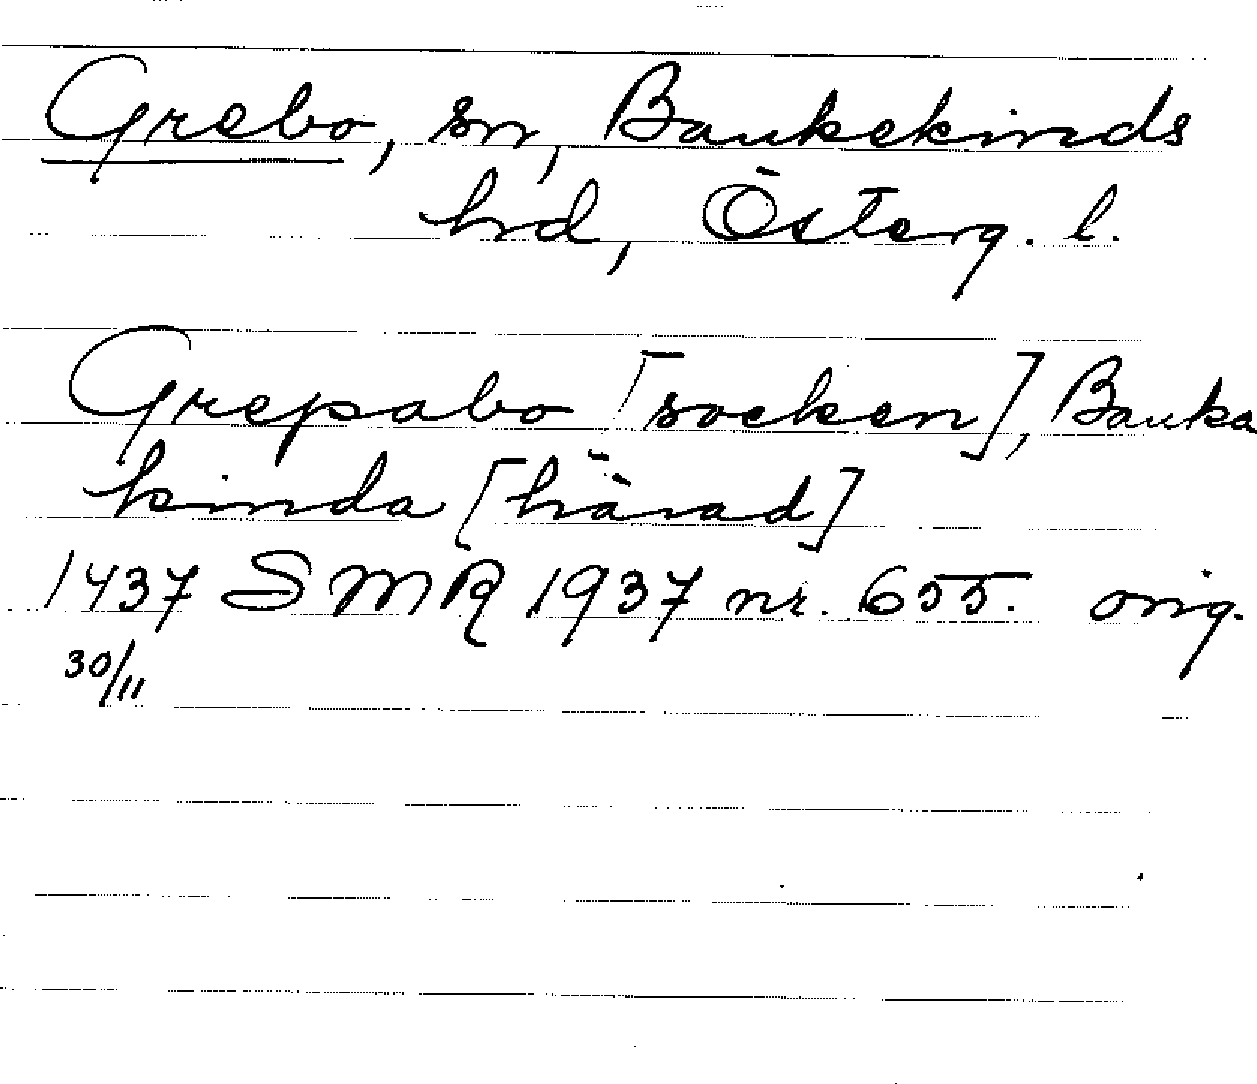 Grebo, sn, Bankekinds
hd, Österg. l.
Grepabo [socken], Banka
kinda [härad]
1437 SMR 1937 nr. 655. orig.
30/11